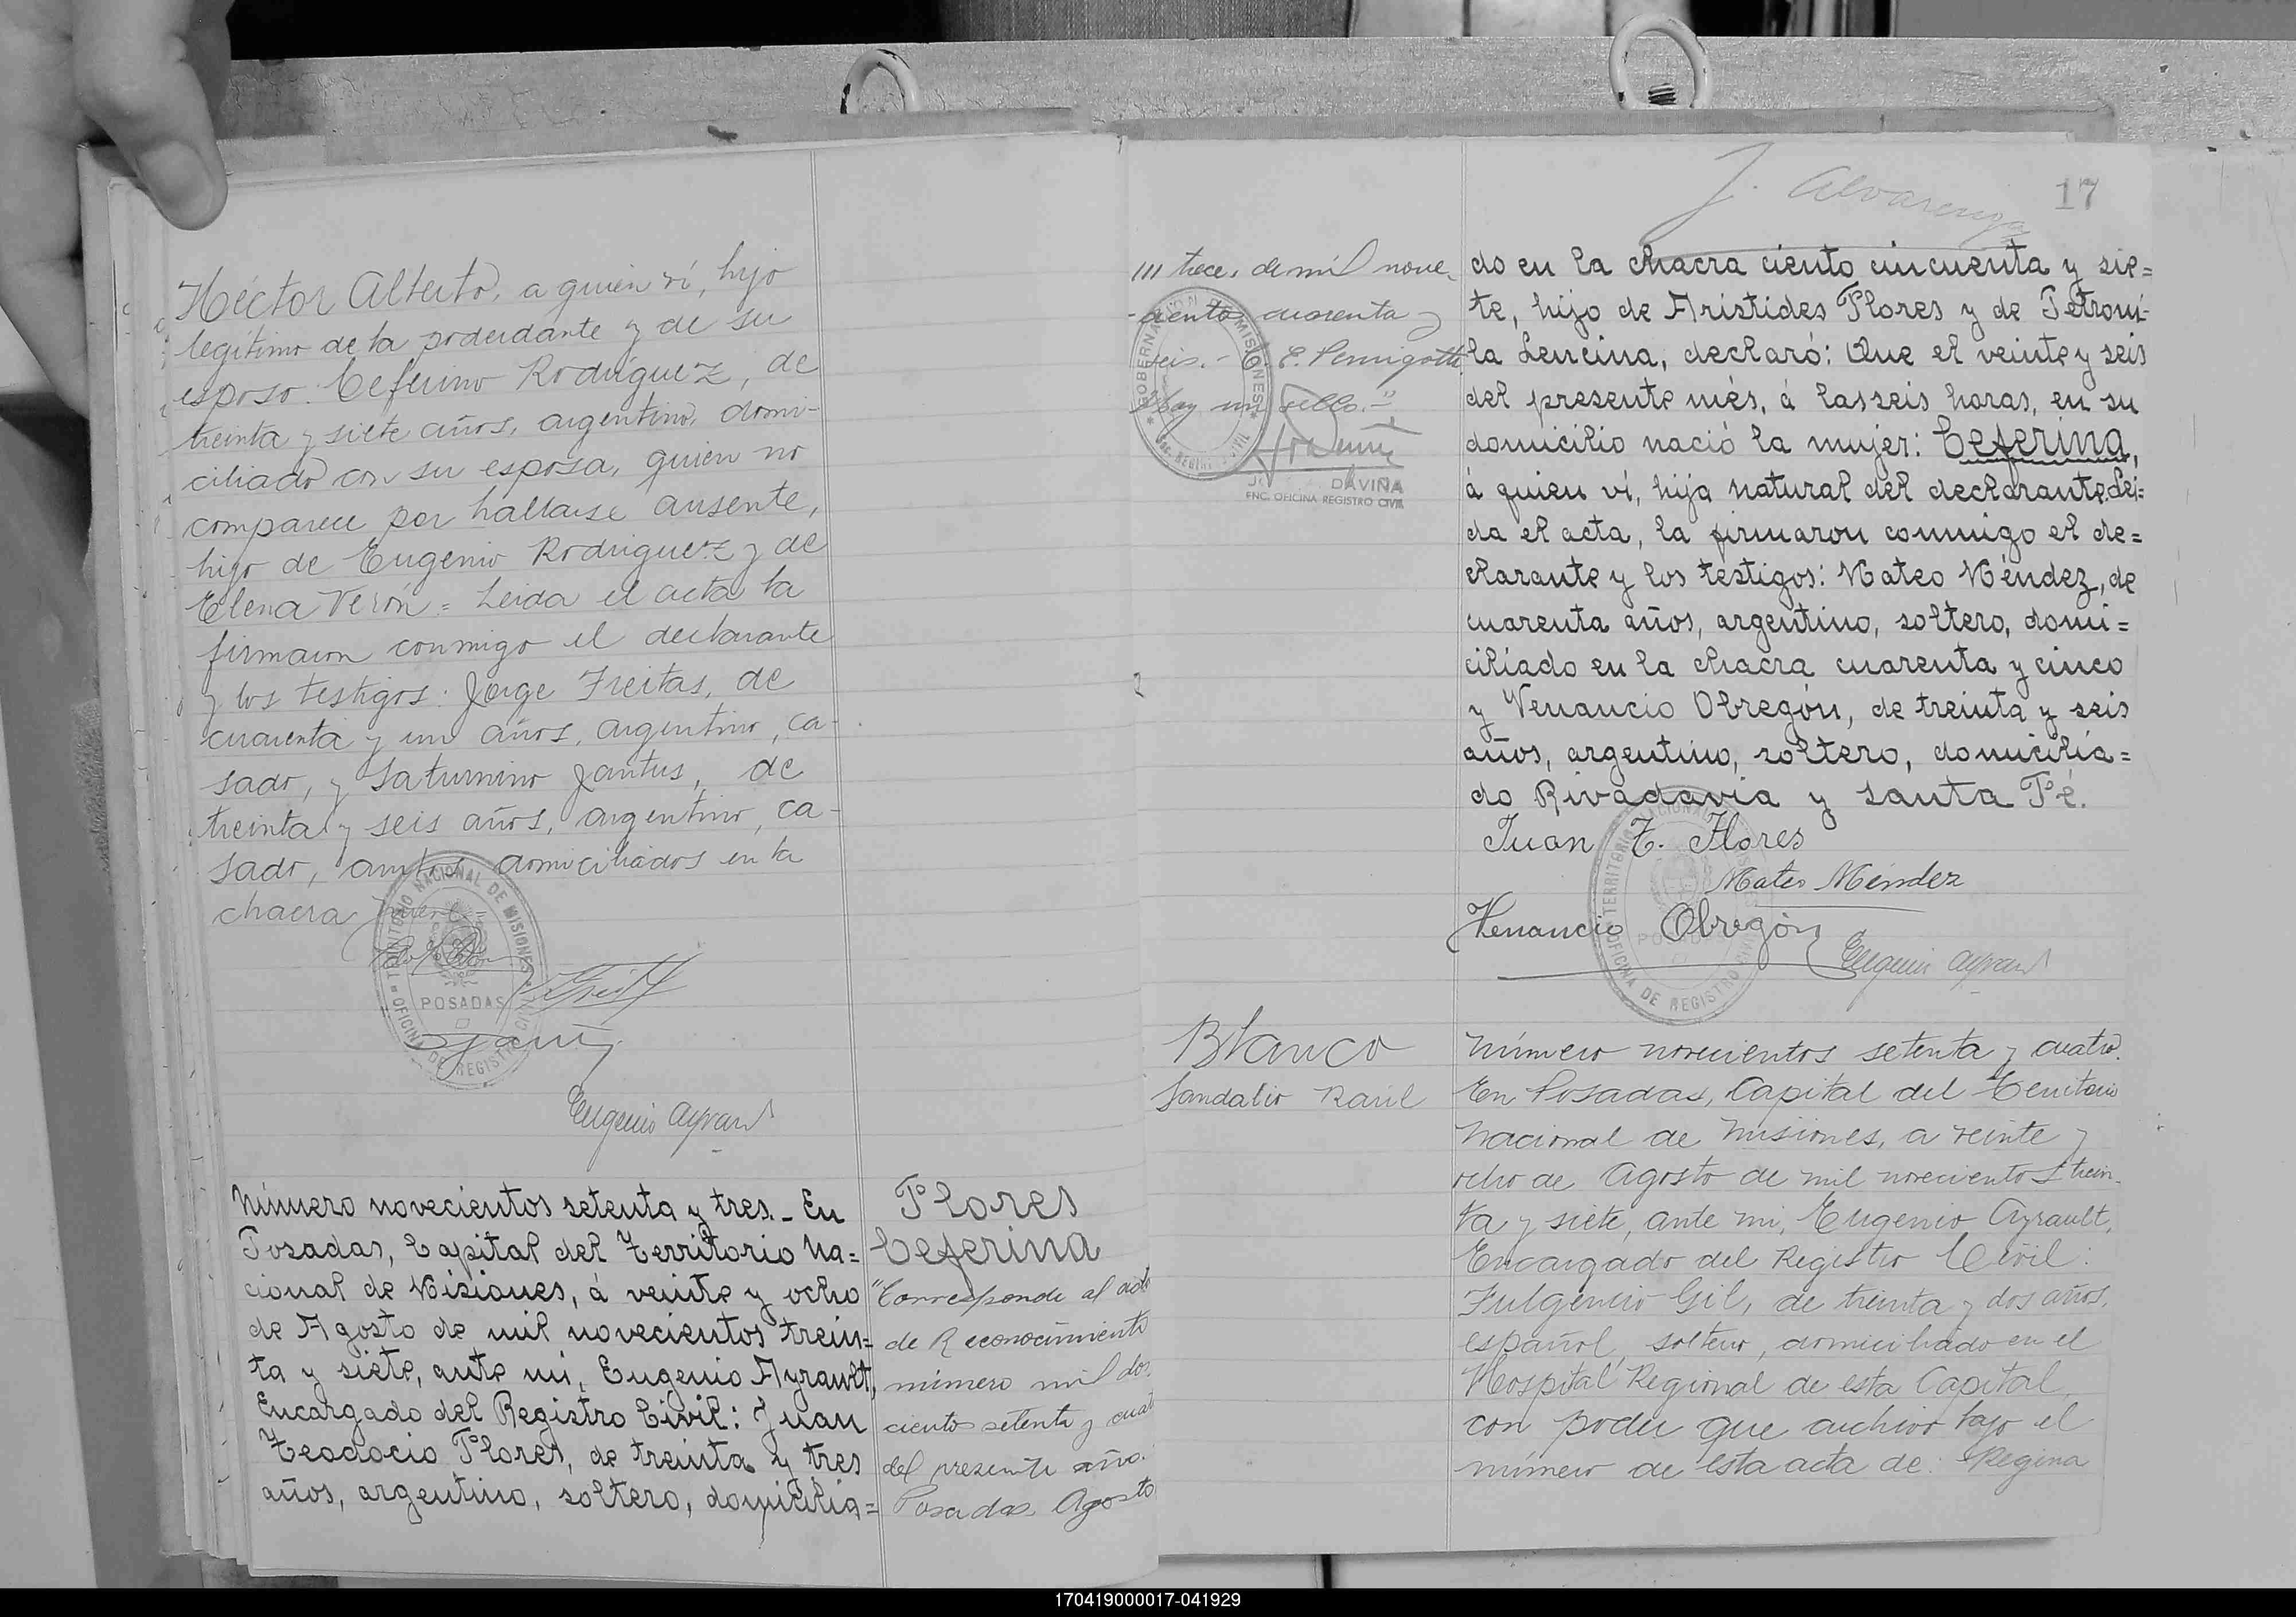 Héctor Alberto, a quien ví, hijo
legítimo de la poderdante y de su
esposo: Ceferino Rodríguez, de
treinta y siete años, argentino, domi-
ciliado con su esposa, quien no
comparece por hallarse ausente,
hijo de Eugenio Rodríguez y de
Elena Verón = Leida el acta la
firmaron conmigo el declarante
y los testigos: Jorge Freitas, de
cuarenta y un años, argentino, ca-
sado, y Saturnino Jantus, de
treinta y seis años, argentino, ca-
sado, ambos domiciliados en la
chacra nueve =
TERRITORIO NACIONAL DE MISIONES
POSADAS
OFICINA DE REGISTRO CIVIL
Eugenio Ayrault
Número novecientos setenta y tres. - En
Posadas, Capital del Territorio Na=
cional de Misiones, á veinte y ocho
de Agosto de mil novecientos trein=
ta y siete, ante mí, Eugenio Ayrault,
Encargado del Registro Civil: Juan
Teodocio Flores, de treinta y tres
años, argentino, soltero, domicilia=
Flores
Ceferina
"Corresponde al acta
de Reconocimiento
número mil dos
ciento setenta y cuat
del presente año.
Posadas, Agosto
J. Alvarenga
17
/// trece, de mil nove-
-ciento cuarenta y
seis. - C. E. Penigotti
Hay un sello. -"
GOBERNACION DE MISIONES
DAVIÑA
ENC. OFICINA REGISTRO CIVIL
do en la chacra ciento cincuenta y sie=
te, hijo de Arístides Flores y de Petroni-
la Lencina, declaró: Que el veinte y seis
del presente més, á las seis horas, en su
domicilio nació la mujer: Ceferina,
á quien ví, hija natural del declarante. Leí=
da el acta, la firmaron conmigo el de=
clarante y los testigos: Mateo Méndez, de
cuarenta años, argentino, soltero, domi=
ciliado en la chacra cuarenta y cinco
y Venancio Obregón, de treinta y seis
años, argentino, soltero, domicilia=
do Rivadavia y Santa Fé.
Juan T. Flores
Mateo Méndez
Venancio Obregón
Eugenio Ayrault
TERRITORIO NACIONAL DE MISIONES
POSADAS
OFICINA DE REGISTRO CIVIL
Blanco
Sandalio Raúl
Número novecientos setenta y cuatro.
En Posadas, Capital del Territorio
Nacional de Misiones, a veinte y
ocho de Agosto de mil novecientos trein-
ta y siete, ante mí, Eugenio Ayrault,
Encargado del Registro Civil:
Fulgencio Gil, de treinta y dos años,
español, soltero, domiciliado en el
Hospital Regional de esta Capital,
con poder que archivo bajo el
número de esta acta de: Regina
170419000017-041929